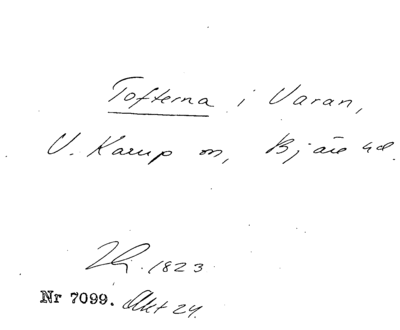 Tofterna i Varan,
V. Karup sn, Bjäre hd.
1823
Nr 7099. Akt 24.